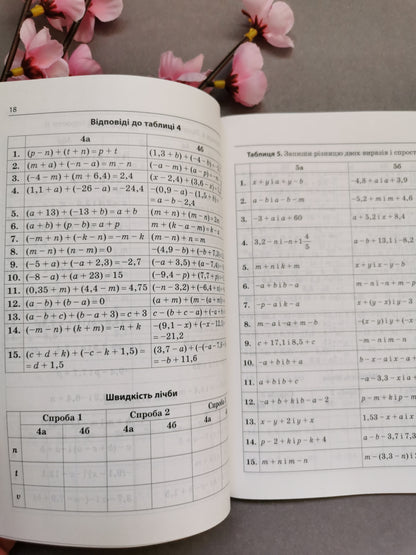 18
Відповіді до таблиці 4
4а 4б
1. (p − n) + (t + n) = p + t (1,3 + b) + (−4 − b)
2. (m + a) + (−n − a) = m − n (−a − m) + (a − p)
3. (−4 − m) + (m + 6,4) = 2,4 (x − 2,4) + (3,6 −
4. (1,1 + a) + (−26 − a) = −24,4 −(0,9 − a) − (1,5 + b) =
= a − b − 2,4
5. (a + 13) + (−13 + b) = a + b (m + n) + (m − n) = 2m
6. (a + b) + (p − b) = a + p m + (k − a − m) =
7. (−m + n) + (−k − n) = −m − k (m − n) + n = m
8. (m − n) + (n − m) = 0 (−4,9 − b) + (−b +
9. (−5 + a) + (−a + 2,3) = −2,7 (−a + 3,5) + (a − 7,4) =
10. (−8 − a) + (a + 23) = 15 (−9,4 − p) + (7,7 +
11. (0,35 + m) + (4,4 − m) = 4,75 (−n − 3,2) + (−6,4 + n)
12. (a − b) + (b − a) = 0 (a + m) + (m − (a +
13. (a − b + c) + (b − a + 3) = c + 3 (−a − b − c) + (b +
14. (−m − n) + (k + m) = −n + k −(9,1 − x) + (−x − 12,
= −21,2
15. (c + d + k) + (−c − k + 1,5) = (3,7 − a) + (−(−a − 7,
= d + 1,5 = −b + 11,6
Швидкість лічби
Спроба 1 Спроба 2
4а 4б 4а 4б
n
t
v
Таблиця 5. Запиши різницю двох виразів і спрост
5а 5б
1. x + y і a + y − b −4,8 + a і a + 3,9
2. a − b і a − b − m −5,2 + m і m + 4,6
3. −3 + a і a + 60 a + 5,2 і z + 8,4
4. 3,2 − n і −n + 1 4/5 a − b + 13,1 і −8,2
5. m + n і k + m x + y і x − y − m
6. −a + b і b + a m − n і −n + m − p
7. −p − a і k − a x + (y − x) і y − 3
8. m − a і −a + m − b −(x − y) і y +
9. c + 17,1 і 8,5 + c −m − n і m − n
10. −a + b і b + a b − x − a і x − a
11. a + b і b + c −a − 3,3 − x і a
12. −a + b + k і b − a − 2 p − m + k і p − m
13. x − y + 2 і y + x 1,53 − x + a і x
14. p − 2 + k і p − k + 4 a − b − 3,7 і
15. m + n і m − n m − (3,3 − n) і